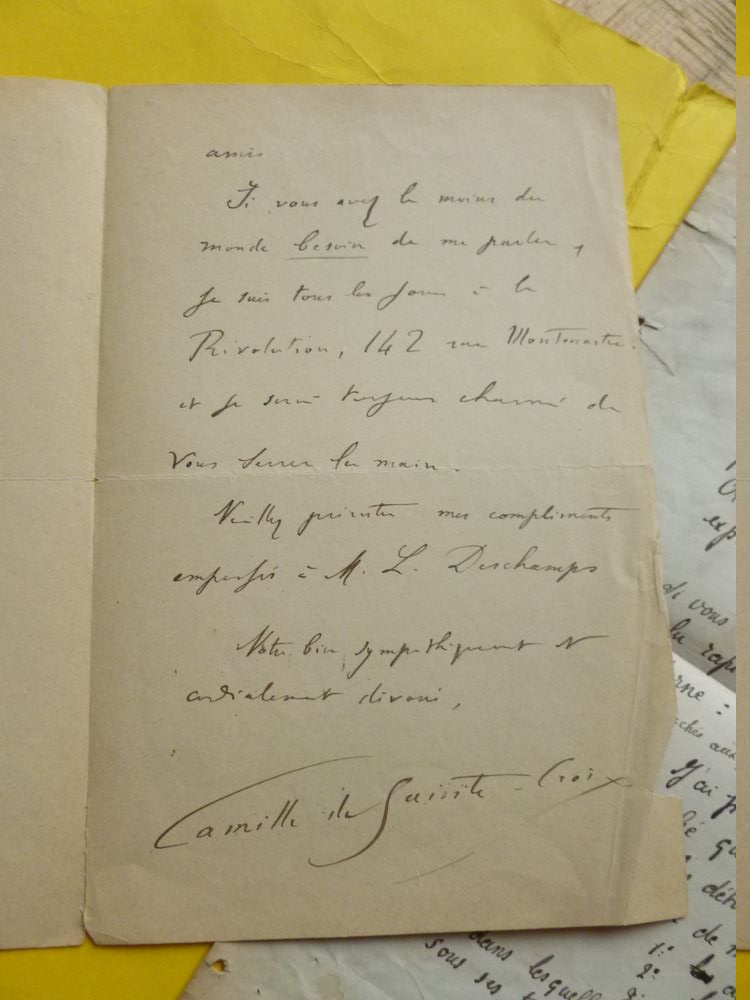 amis
Si vous avez le moins du
monde besoin de me parler,
je suis tous les jours à la
Révolution, 142 rue Montmartre.
et je serai toujours charmé de
vous serrer la main.
Veuillez présenter mes compliments
empressés à M. L. Deschamps
Votre bien sympathiquement et
cordialement dévoué,
Camille de Sainte-Croix
exp
di vous
la rap
rne =
chés aux
J'ai p
é qu
dét
de
1:
2:
dans lesquell
sous ses